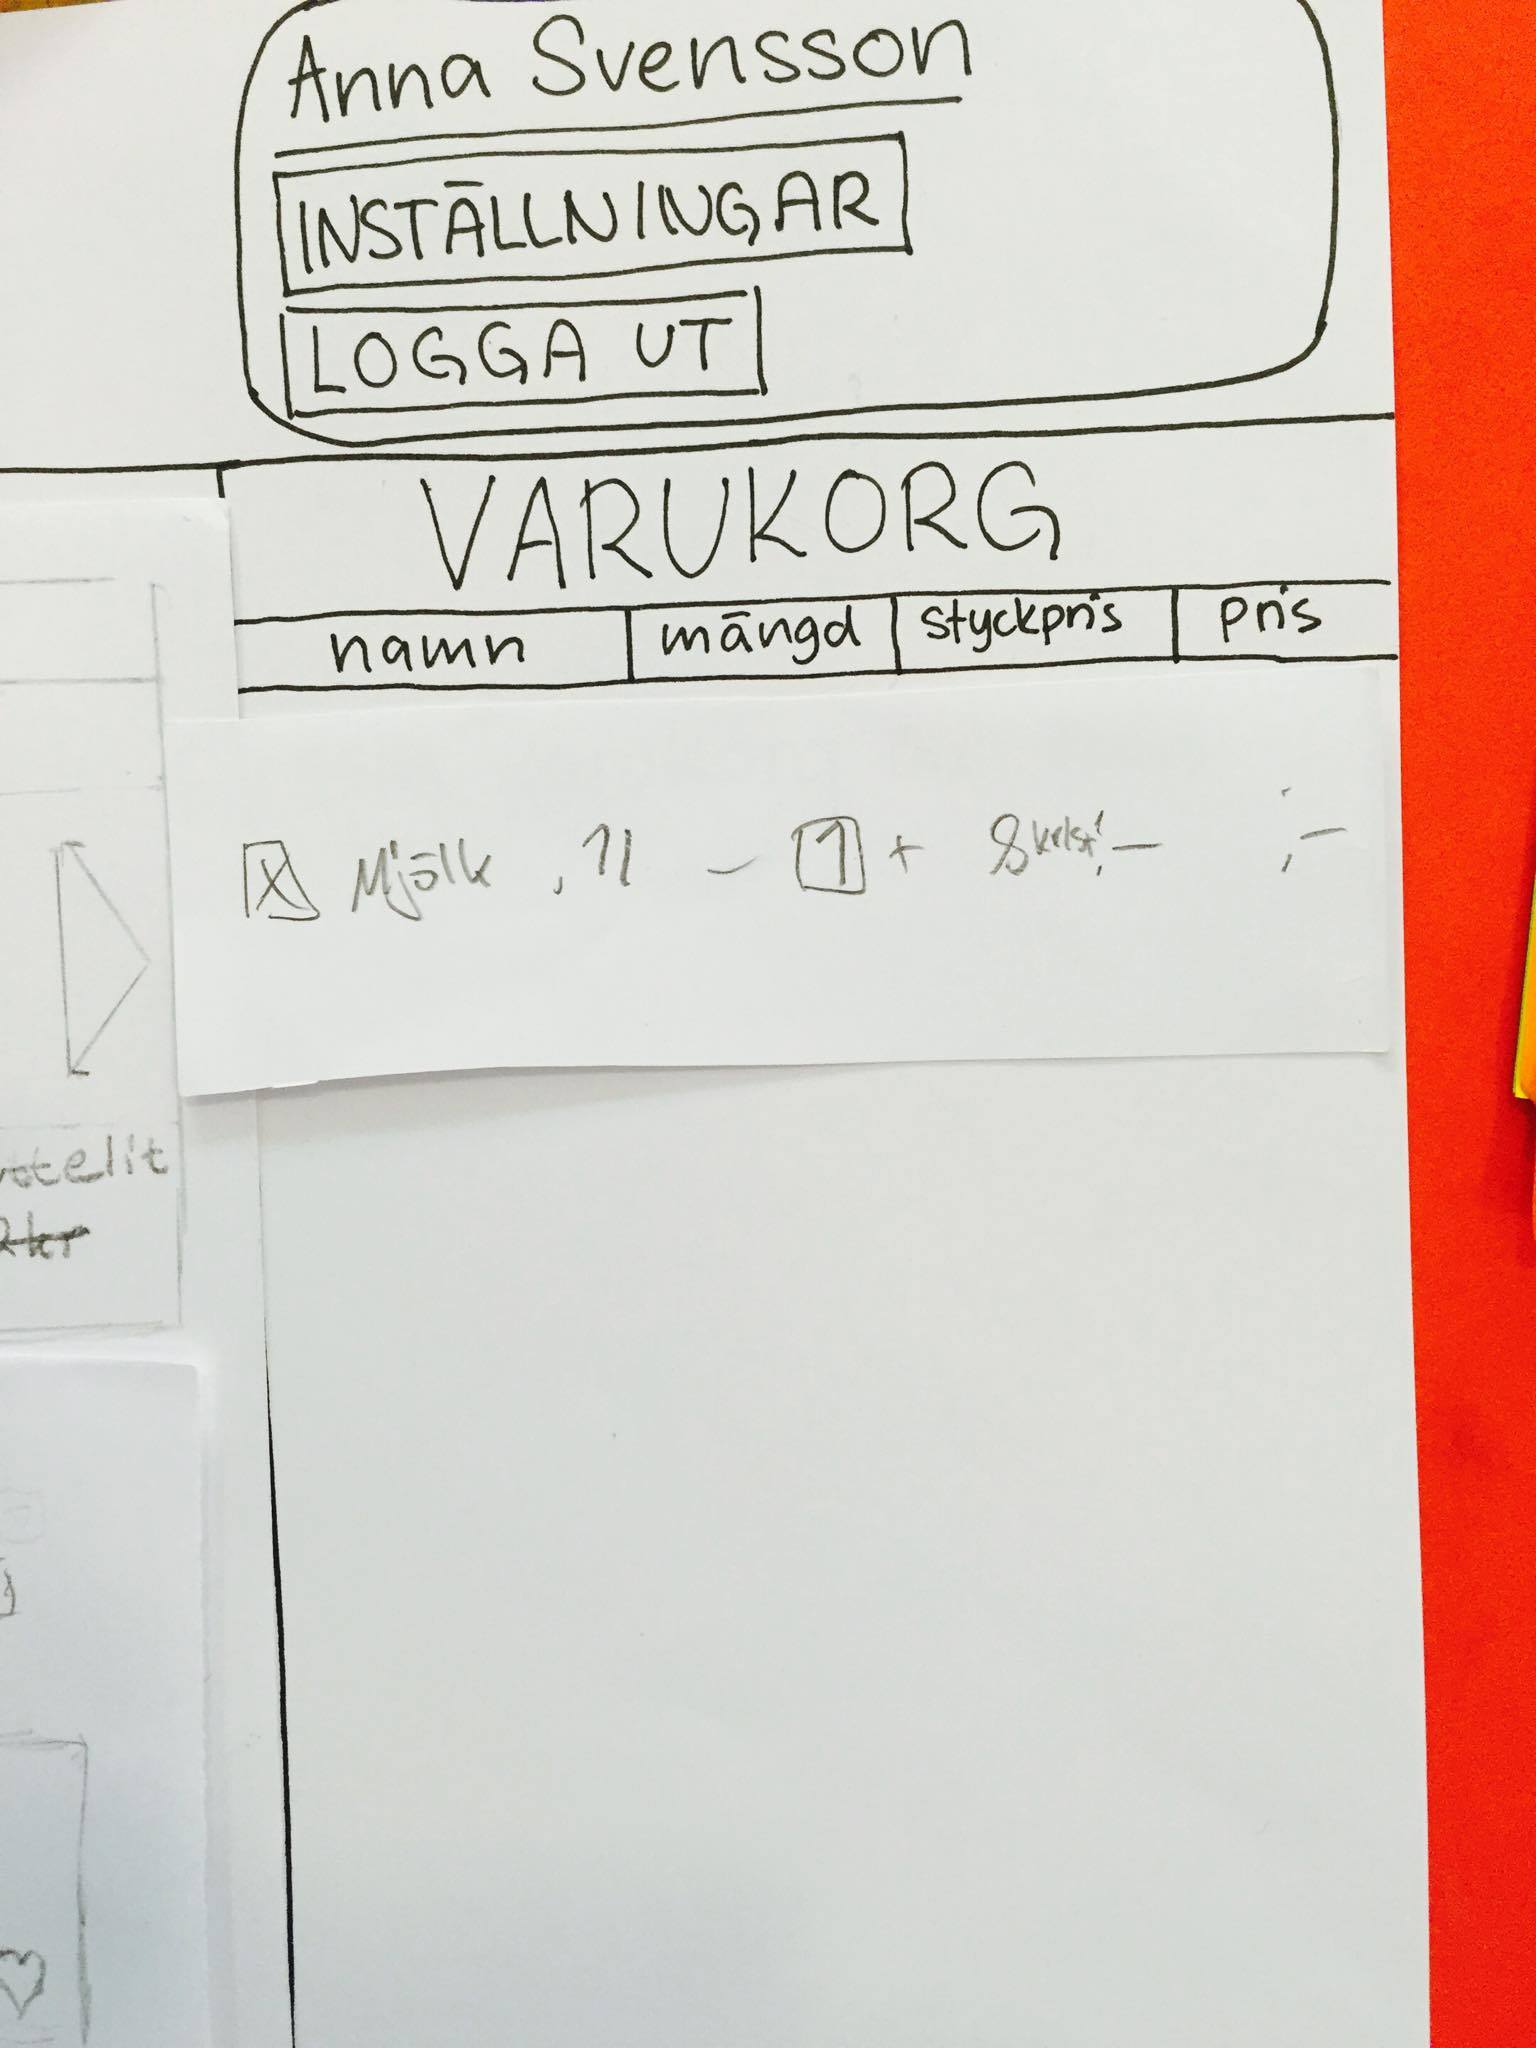 Anna Svensson
INSTÄLLNINGAR
LOGGA UT
VARUKORG
namn mängd styckpris pris
X Mjölk, 1l - 1 + 8 kr/st ;-